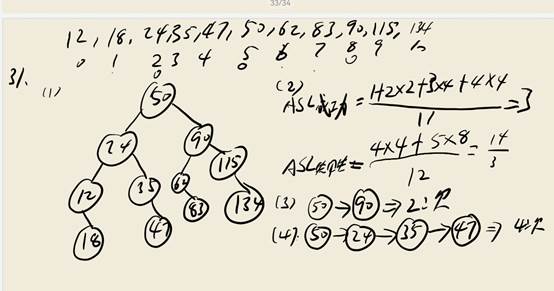 33/34
12, 18, 24, 35, 47, 50, 62, 83, 90, 115, 134
0 1 2 3 4 5 6 7 8 9 10
31.
(1)
50
24
90
12
35
62
115
18
47
83
134
(2)
ASL成功 = 1+2×2+3×4+4×4 / 11 = 3
ASL失败 = 4×4+5×8 / 12 = 14/3
(3) 50→90⇒2次
(4). 50→24→35→47⇒4次